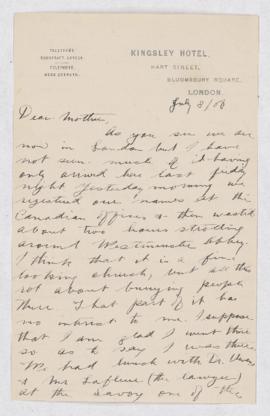 KINGSLEY HOTEL,
HART STREET,
BLOOMSBURY SQUARE,
LONDON.
July 8/06
Dear Mother,
As you see we are
now in London but I have
not seen much of it having
only arrived here last friday
night yesterday morning we
registered our names at the
Canadian offices & then wasted
about two hours strolling
around Westminster Abbey.
I think that it is a fine
looking church, but all this
rot about burying people
there. That part of it has
no interest to me. I suppose
that I am glad I went there
so as to say I was there.
We had lunch with Dr.
& Mr Lafleur (the lawyer)
at the Savoy one of the